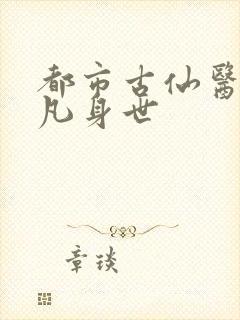 都市古仙醫
凡身世
章琰